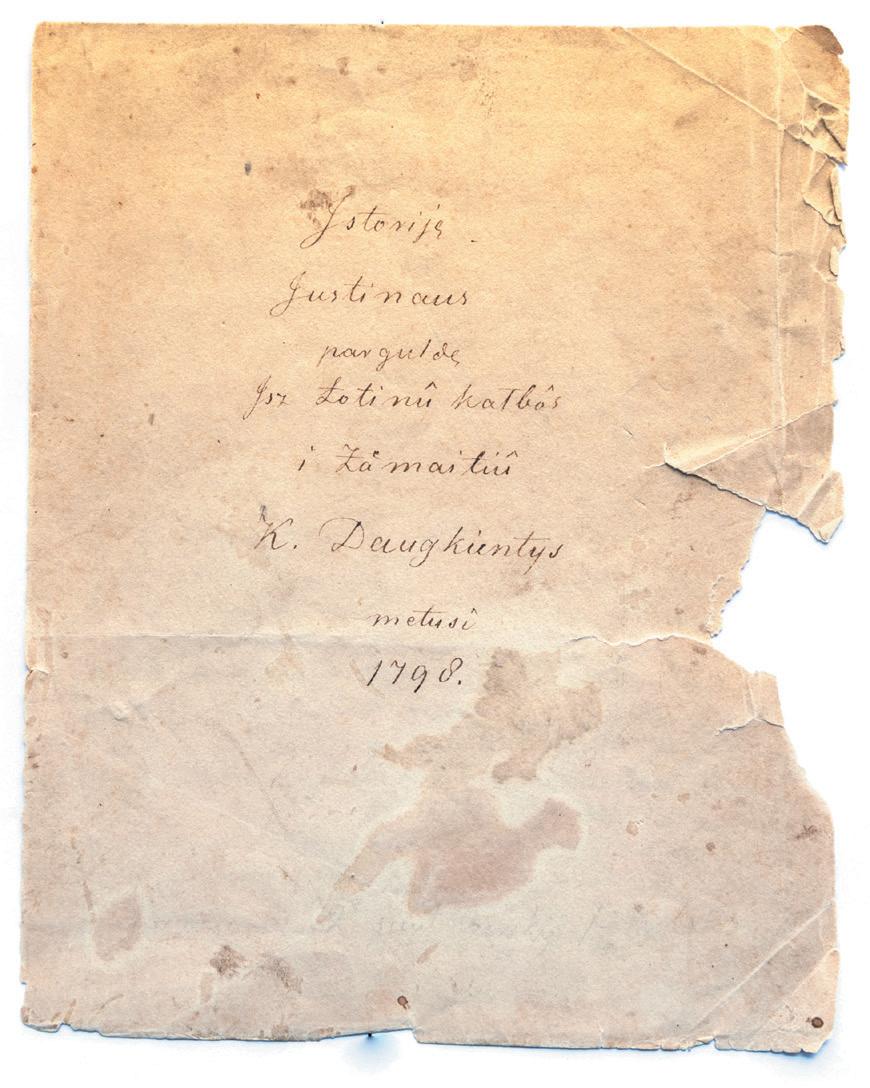 Istoriję
Justinaus
parguldę
Isz Łotinû kałbôs
i Żâmaitiû
K. Daugkientys
metusî
1798.